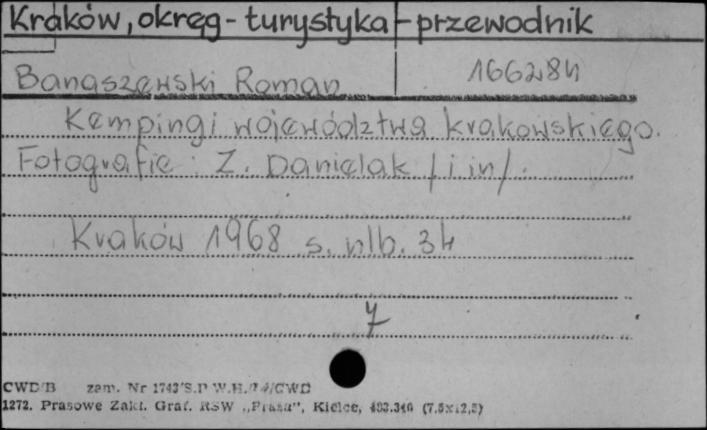 Kraków, okręg - turystyka - przewodnik
Banaszewski Roman 166284
Kempingi województwa krakowskiego.
Fotografie: Z. Danielak /i in/.
Kraków 1968 s. nlb. 34
CWD/B zam. Nr 1743
1272. Prasowe Zakł. Graf. RSW „Prasa", Kielce,